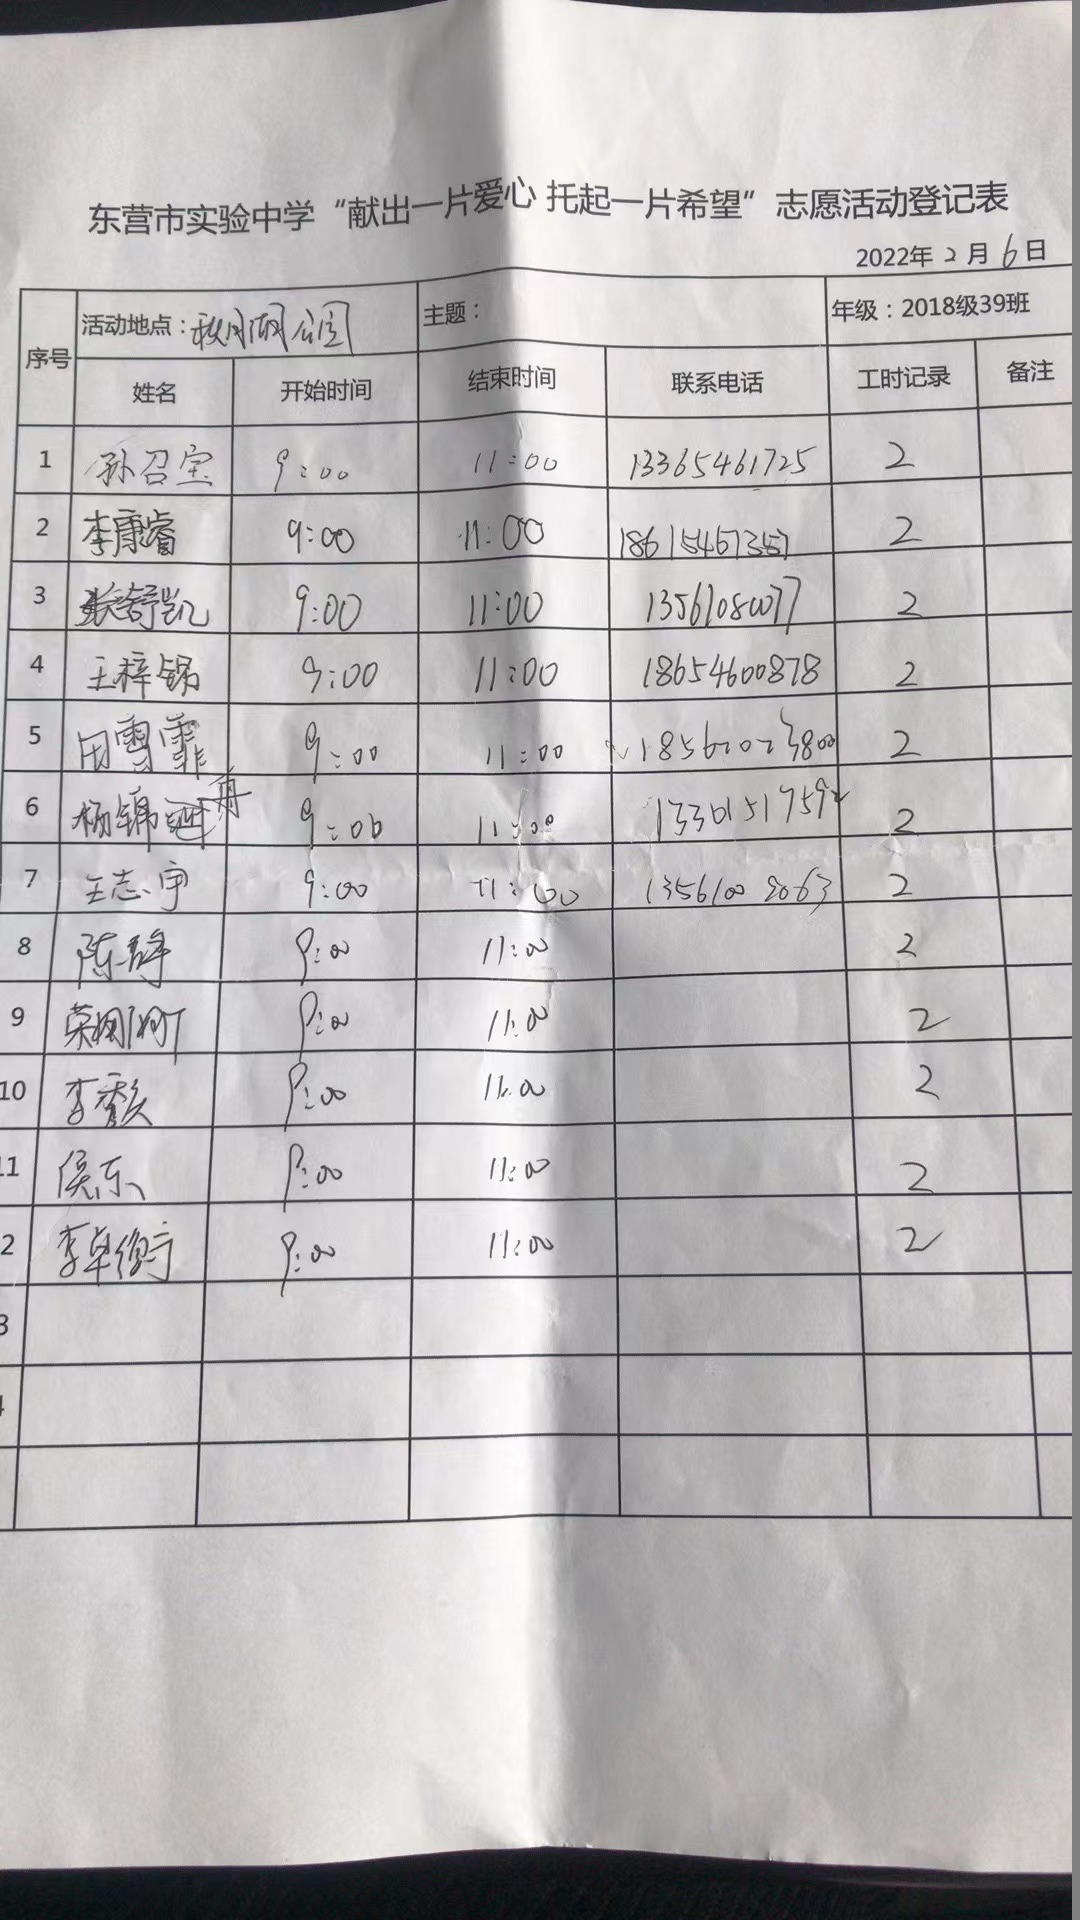 东营市实验中学“献出一片爱心 托起一片希望”志愿活动登记表
2022年 2 月 6 日
序号 活动地点：秋月湖公园 主题： 年级：2018级39班
姓名 开始时间 结束时间 联系电话 工时记录 备注
1 孙召宝 9:00 11:00 13365461725 2
2 李康睿 9:00 11:00 18615467357 2
3 张舒凯 9:00 11:00 2
4 王梓锡 9:00 11:00 18654600878 2
5 田雪霏 9:00 11:00 18562023800 2
6 杨锦 9:00 11:00 2
7 王志宇 9:00 11:00 2
8 陈静 9:00 11:00 2
9 9:00 11:00 2
10 李 9:00 11:00 2
11 侯东 9:00 11:00 2
2 李卓衡 9:00 11:00 2
3
4